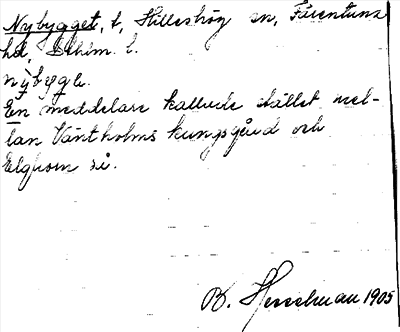 Nybygget, t, Hilleshög sn, Färentuna
hd, Sthlm. l.
nybygg.
En meddelare kallade stället mel-
lan Väntholms kungsgård och
så.
B. Hesselman 1905